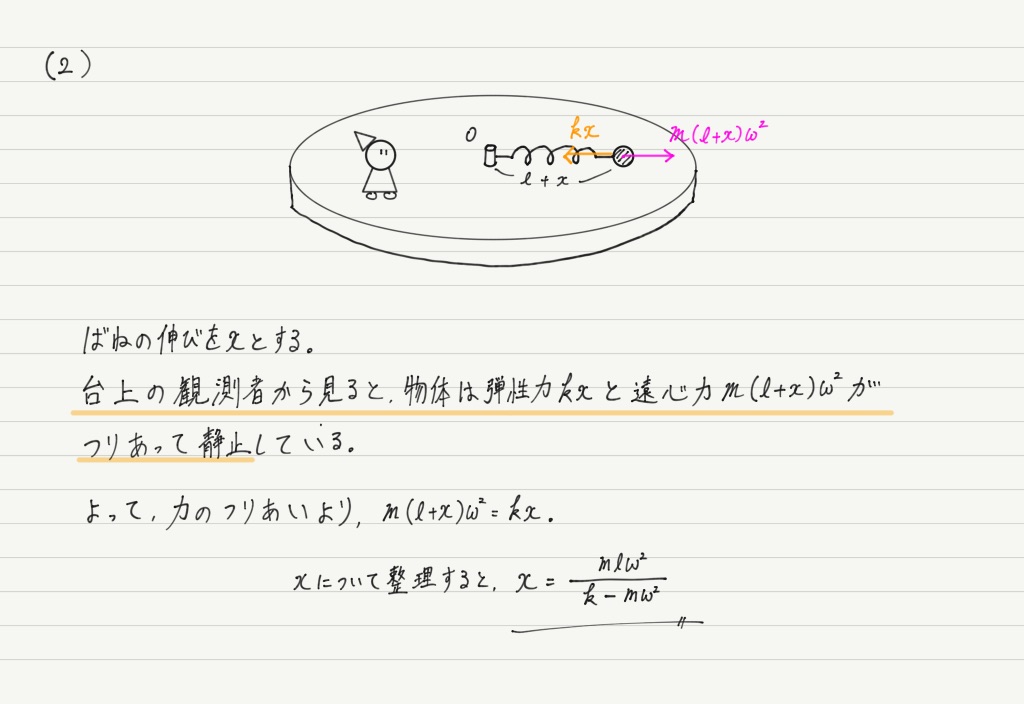 (2)
O
kx
m(l+x)ω²
l + x
ばねの伸びをxとする。
台上の観測者から見ると、物体は弾性力kxと遠心力m(l+x)ω²が
つりあって静止している。
よって、力のつりあいより、m(l+x)ω² = kx.
xについて整理すると、x = mlω² / k − mω²